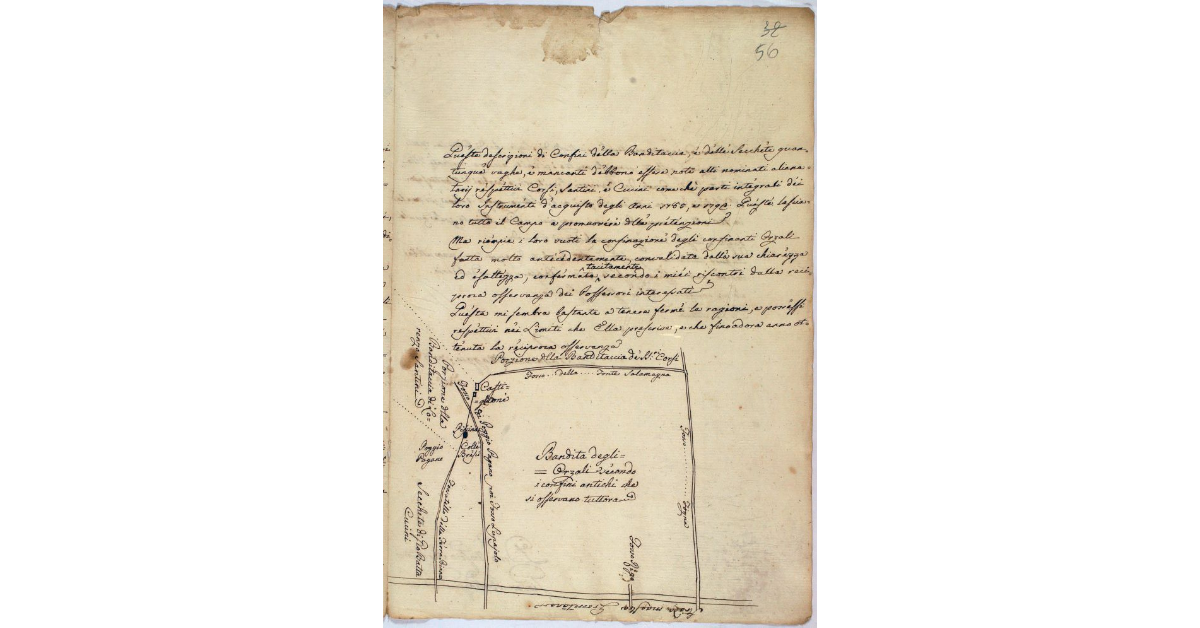 56
Queste descrizioni di Confini della Banditaccia, e delle Secchéte quan-
tunque vaghe, e mancanti debbono essere note alli nominati aliena-
tarj respettivi Corsi, Santini, e Cucini come che parti integrali dei
loro Instrumenti d'acquisto degli Anni 1788, e 1790. Queste lascia-
no tutto il Campo a promuovere delle pretenzioni
Ma riempie i loro vuoti la confinazione degli confinanti Orzali
fatta molto antecedentemente, convalidata dalla sua chiarezza
ed esattezza, confermata, secondo i miei riscontri dalla reci-
tacitamente
proca osservanza dei Possessori interessati
Questa mi sembra bastante a tenere ferme le ragioni, e possessi
respettivi nei Limiti che Ella prescrive, e che fino adora anno ot-
tenuta la reciproca osservanza
Porzione della Banditaccia de SS.ri Corsi
Fosso della Fonte Salamagna
Porzione della
Banditaccia di Lo-
renzo Santini
Casti-
glioni
Fosso
di Poggio Pagano poi Fosso Lupajolo
Colle
Poggio
Pagano
Secchete di Gio Batta
Cucini
Bandita degli
Orzali secondo
i confini antichi che
si osservano tuttora
Fosso
Fosso